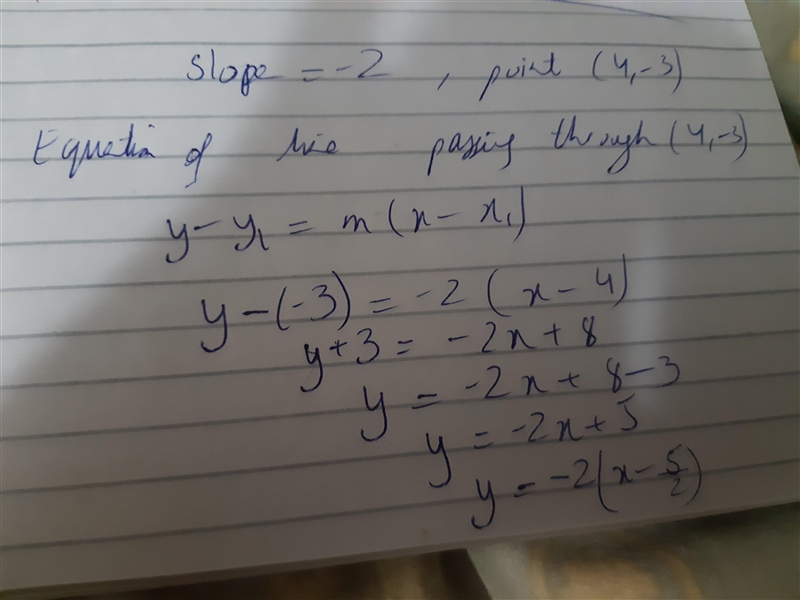 Slope = -2 , point (4,-3)
Equation of line passing through (4,-3)
y - y₁ = m(x - x₁)
y - (-3) = -2(x - 4)
y + 3 = -2x + 8
y = -2x + 8 - 3
y = -2x + 5
y = -2(x - 5/2)